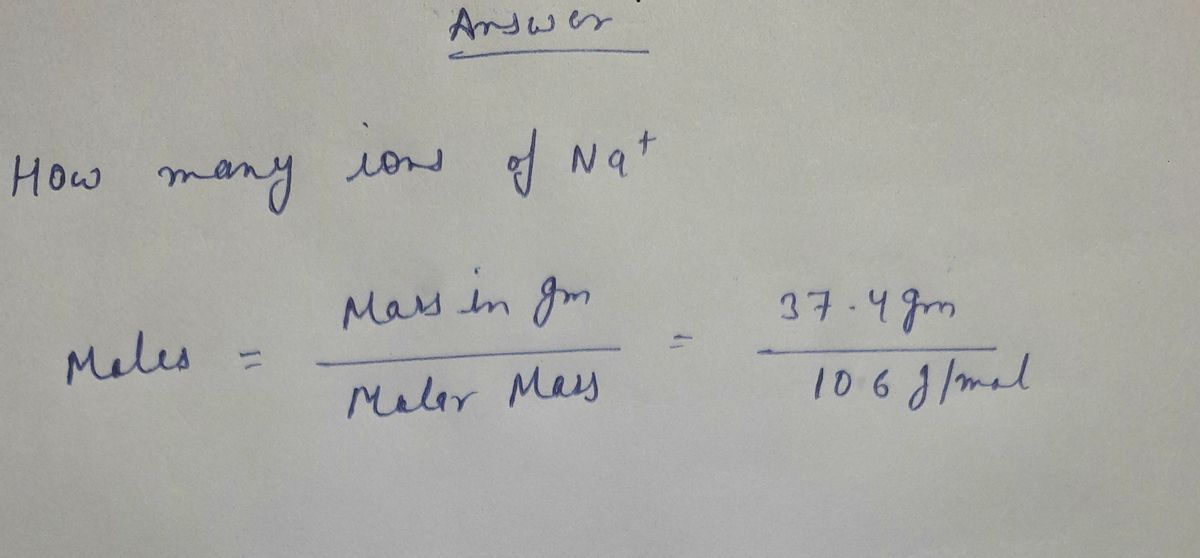 Answer
How many ions of Na+
Moles = Mass in gm / Molar Mass = 37.4 gm / 106 g/mol